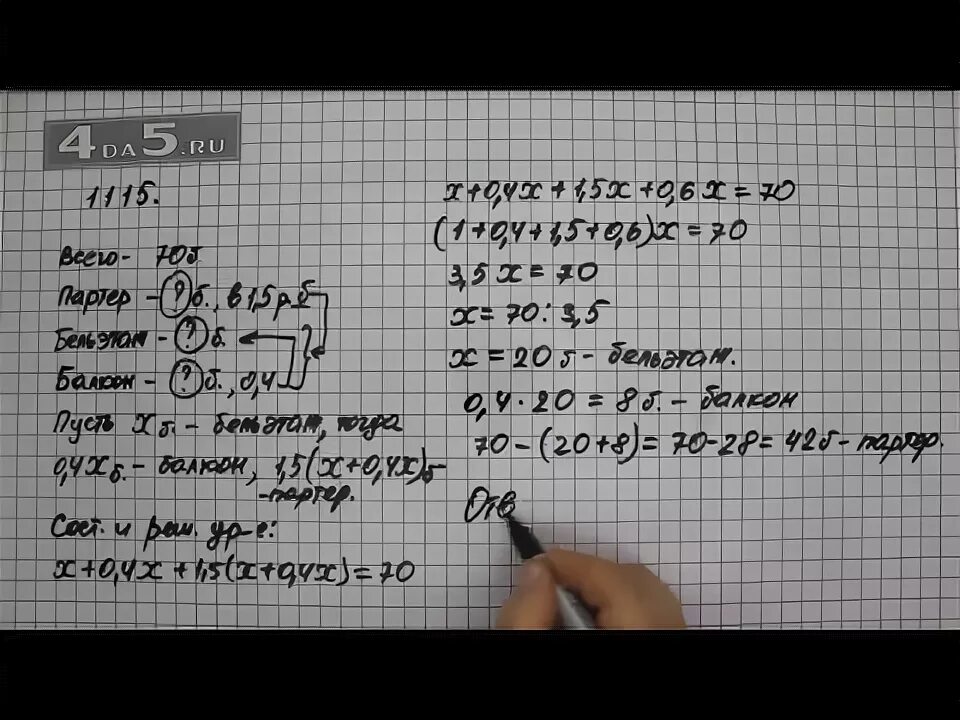 4DA5.RU
1115.
Всего - 70б
Партер - ? б., в 1,5 р. б
Бельэтаж - ? б.
Балкон - ? б., 0,4
Пусть x б. - бельэтаж, тогда
0,4x б. - балкон, 1,5(x+0,4x) б
- партер.
Сост. и реш. ур-е:
x+0,4x+1,5(x+0,4x)=70
x+0,4x+1,5x+0,6x=70
(1+0,4+1,5+0,6)x=70
3,5x=70
x=70:3,5
x=20 б - бельэтаж.
0,4·20=8 б. - балкон
70-(20+8)=70-28=42 б - партер.
Отв